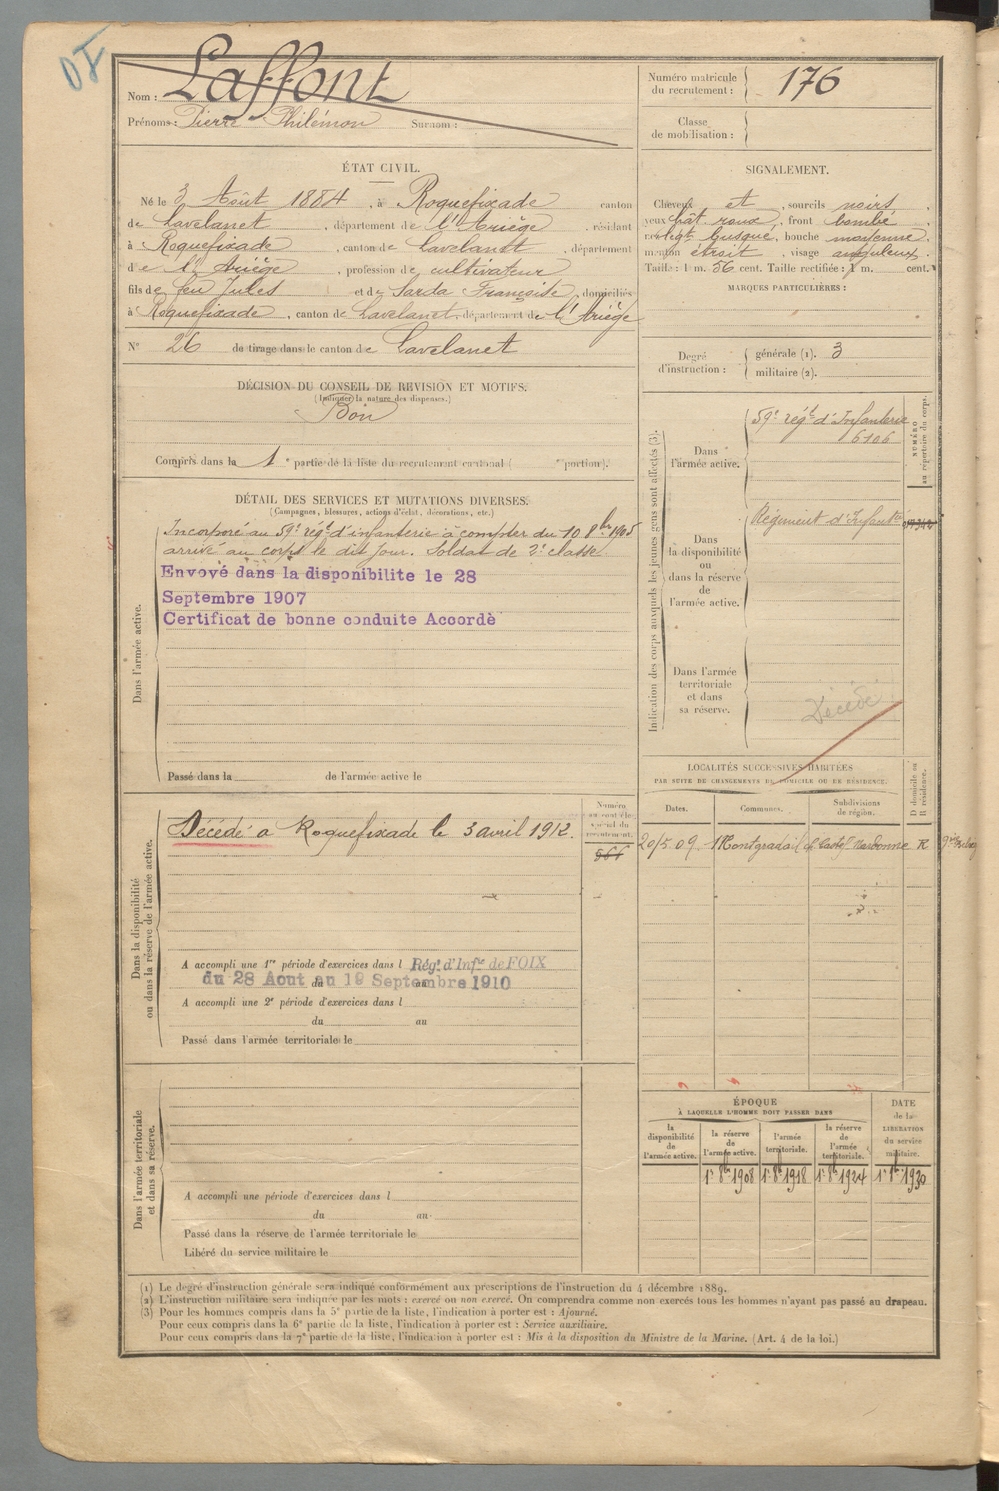 Nom : Laffont
Prénoms : Pierre Philémon Surnom :
Numéro matricule du recrutement : 176
Classe de mobilisation :
ÉTAT CIVIL.
Né le 3 Août 1884, à Roquefixade canton
de Lavelanet, département de l'Ariège, résidant
à Roquefixade, canton de Lavelanet, département
de l'Ariège, profession de cultivateur
fils de feu Jules et de Sarda Françoise, domiciliés
à Roquefixade, canton de Lavelanet, département de l'Ariège
N° 26 de tirage dans le canton de Lavelanet
SIGNALEMENT.
Cheveux et, sourcils noirs,
yeux chât. roux, front bombé
busqué, bouche moyenne,
menton étroit, visage anguleux.
Taille : 1 m. 56 cent. Taille rectifiée : 1 m. cent.
MARQUES PARTICULIÈRES :
Degré d'instruction :
générale (1). 3
militaire (2).
DÉCISION DU CONSEIL DE REVISION ET MOTIFS.
(Indiquer la nature des dispenses.)
Bon
Compris dans la 1e partie de la liste du recrutement cantonal ( e portion).
DÉTAIL DES SERVICES ET MUTATIONS DIVERSES.
(Campagnes, blessures, actions d'éclat, décorations, etc.)
Dans l'armée active.
Incorporé au 59e régt d'infanterie à compter du 10 8bre 1905
arrivé au corps le dit jour. Soldat de 2e classe.
Envoyé dans la disponibilite le 28
Septembre 1907
Certificat de bonne conduite Accordè
Passé dans la de l'armée active le
Indication des corps auxquels les jeunes gens sont affectés (3).
NUMÉRO au répertoire du corps.
Dans l'armée active.
59e régt d'Infanterie
6106
Dans la disponibilité ou dans la réserve de l'armée active.
Régiment d'Infanterie
Dans l'armée territoriale et dans sa réserve.
Décédé
LOCALITÉS SUCCESSIVES HABITÉES
PAR SUITE DE CHANGEMENTS DE DOMICILE OU DE RÉSIDENCE.
Dates. Communes. Subdivisions de région. D domicile ou R résidence.
20/5.09. Montgradail Narbonne R
Dans la disponibilité ou dans la réserve de l'armée active.
Décédé à Roquefixade le 3 avril 1912.
566
A accompli une 1re période d'exercices dans l Régt d'Infie de FOIX
du 28 Aout au 19 Septembre 1910
A accompli une 2e période d'exercices dans l
du au
Passé dans l'armée territoriale le
Dans l'armée territoriale et dans sa réserve.
A accompli une période d'exercices dans l
du au
Passé dans la réserve de l'armée territoriale le
Libéré du service militaire le
ÉPOQUE
À LAQUELLE L'HOMME DOIT PASSER DANS
la disponibilité de l'armée active.
la réserve de l'armée active.
l'armée territoriale.
la réserve de l'armée territoriale.
DATE de la LIBÉRATION du service militaire.
1er 8bre 1908 1er 8bre 1918 1er 8bre 1924 1er 8bre 1930
(1) Le degré d'instruction générale sera indiqué conformément aux prescriptions de l'instruction du 4 décembre 1889.
(2) L'instruction militaire sera indiquée par les mots : exercé ou non exercé. On comprendra comme non exercés tous les hommes n'ayant pas passé au drapeau.
(3) Pour les hommes compris dans la 5e partie de la liste, l'indication à porter est : Ajourné.
Pour ceux compris dans la 6e partie de la liste, l'indication à porter est : Service auxiliaire.
Pour ceux compris dans la 7e partie de la liste, l'indication à porter est : Mis à la disposition du Ministre de la Marine. (Art. 4 de la loi.)